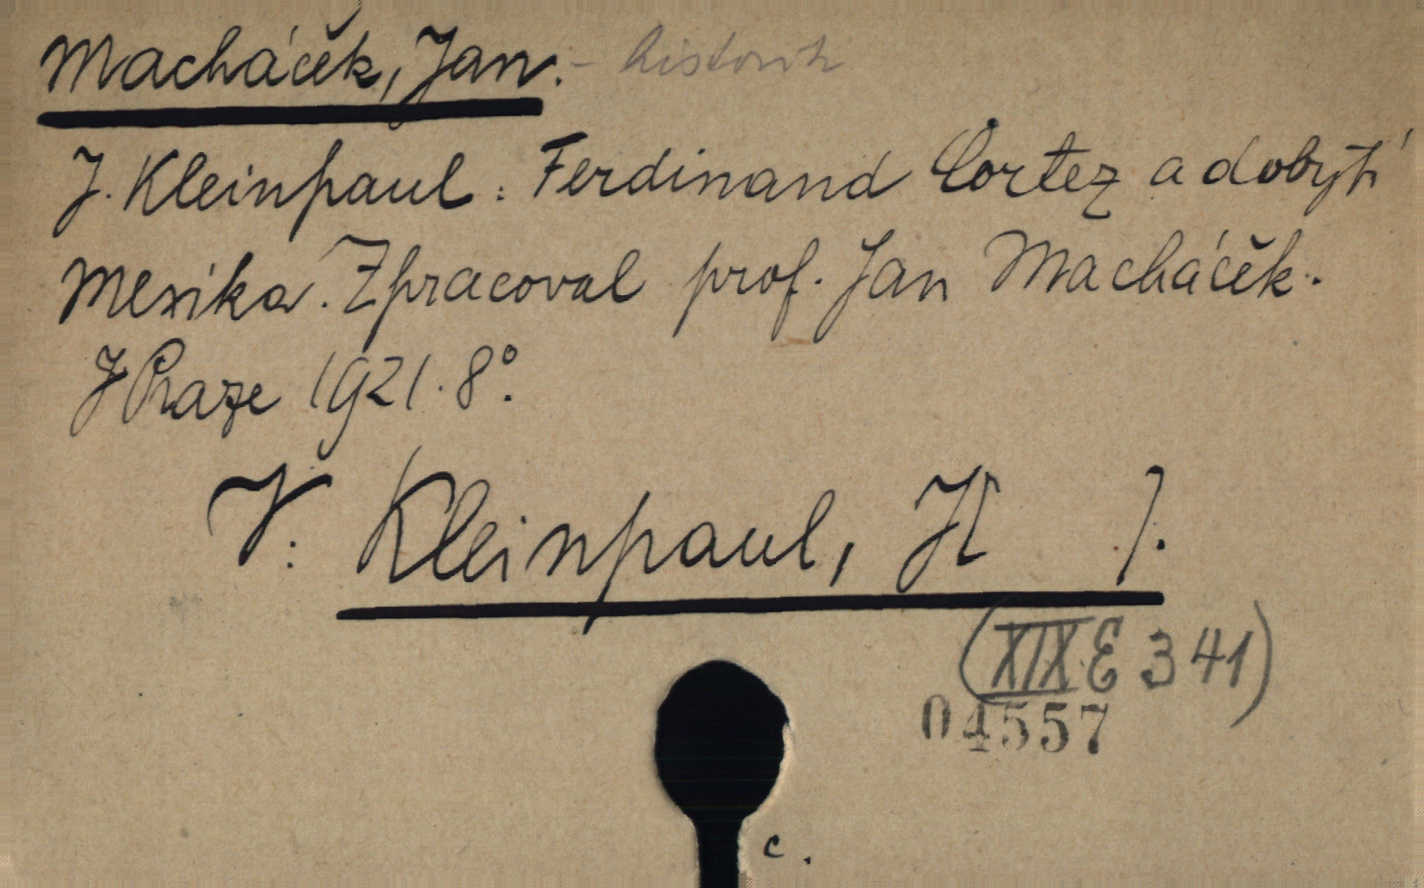 Macháček, Jan. - historik
J. Kleinpaul: Ferdinand Cortez a dobytí
Mexika. Zpracoval prof. Jan Macháček.
V Praze 1921. 8°.
V: Kleinpaul, J[ ].
(XIX E 341)
04557
c.